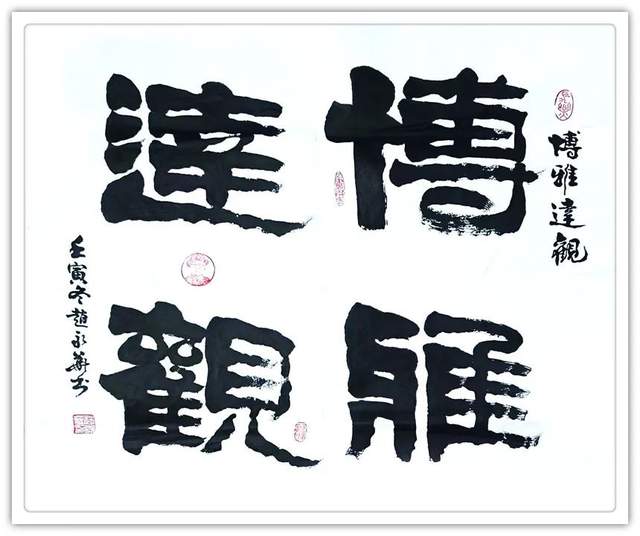 博雅達觀
博雅
達觀
壬寅冬趙永華書